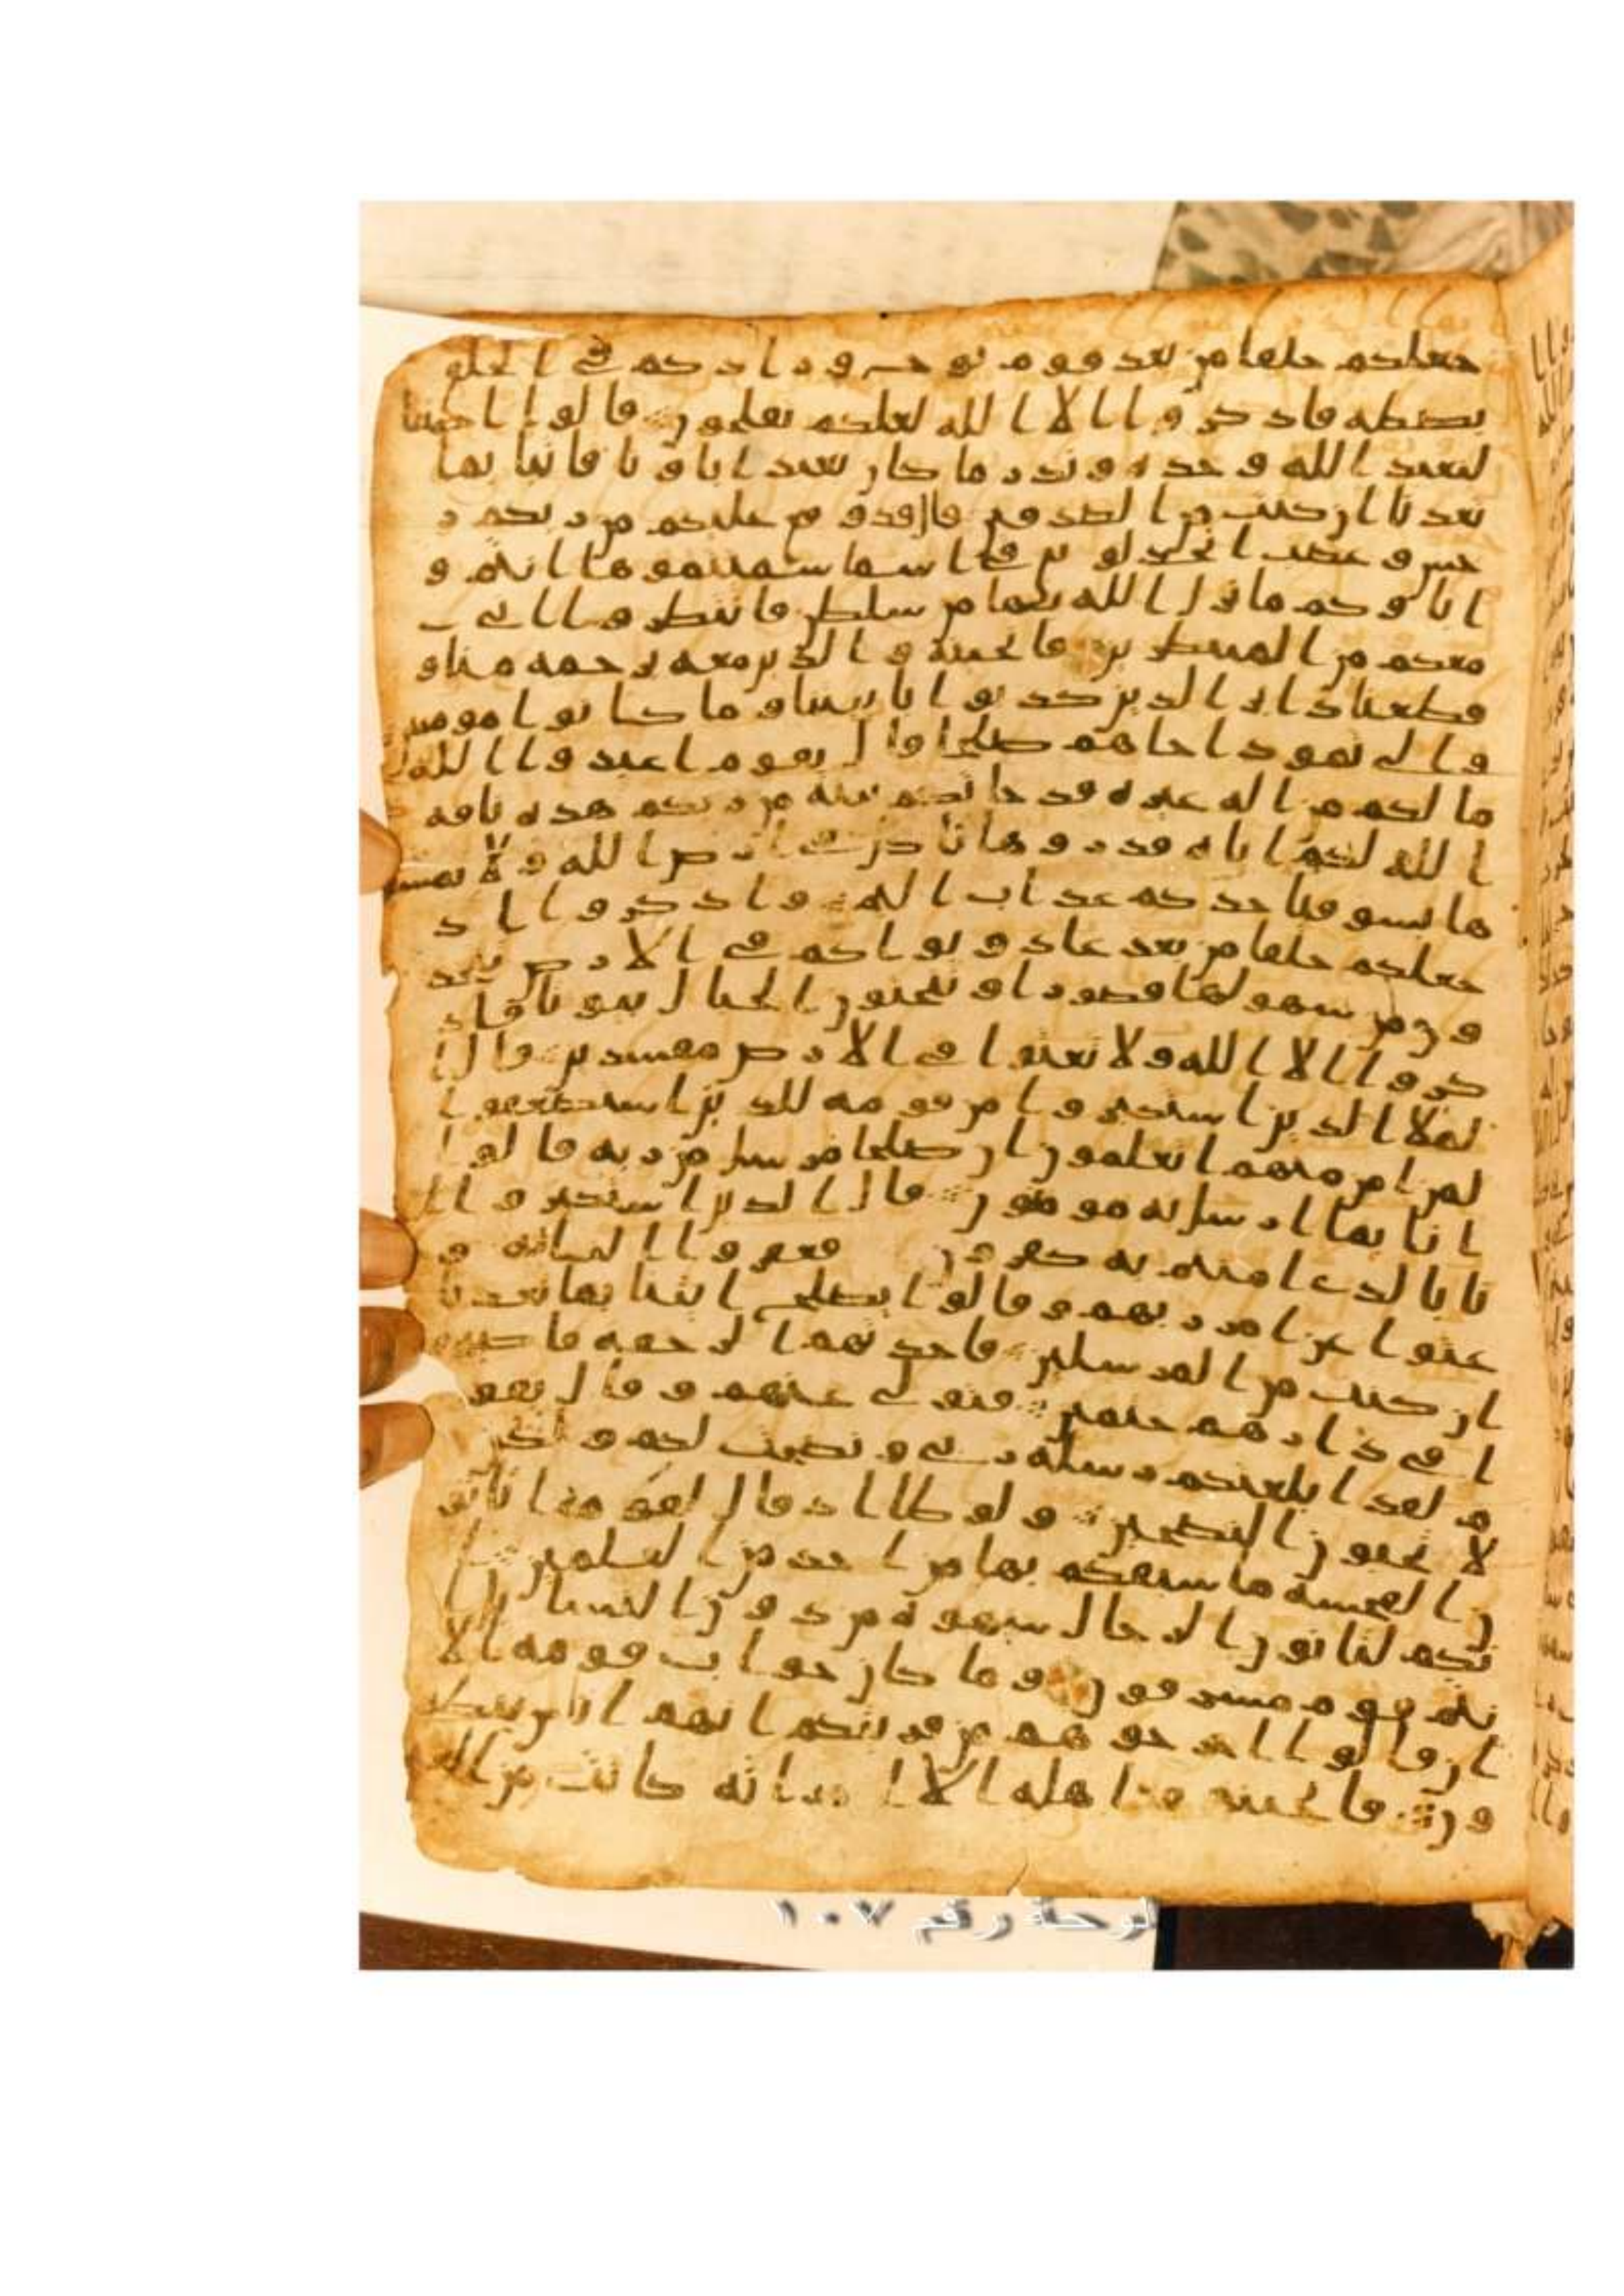 جعلكم خلفا من بعد قوم نوح و زادكم في الخلق
بصطه فاذكروا الا الله لعلكم تفلحون قالوا اجيتنا
لنعبد الله وحده ونذر ما كان يعبد اباونا فاتنا بما
تعدنا ان كنت من الصدقين قال قد وقع عليكم من ربكم ر
جس و غضب اتجدلونني في اسما سميتموها انتم و
اباوكم ما نزل الله بها من سلطن فانتظروا اني
معكم من المنتظرين فانجينه والذين معه برحمه منا و
قطعنا دابر الذين كذبوا باييتنا وما كانوا مومنين
والى ثمود اخاهم صلحا قال يقوم اعبدوا الله
ما لكم من اله غيره قد جاتكم بينه من ربكم هذه ناقه
الله لكم ايه فذروها تاكل في ارض الله ولا تمسو
ها بسو فياخذكم عذاب اليم واذكروا اذ
جعلكم خلفا من بعد عاد وبواكم في الارض تتخذ
ون من سهولها قصورا وتنحتون الجبال بيوتا فاذ
كروا الا الله ولا تعثوا في الارض مفسدين قال ا
لملا الذين استكبروا من قومه للذين استضعفوا
لمن امن منهم اتعلمون ان صلحا مرسل من ربه قالوا
انا بما ارسل به مومنون قال الذين استكبروا ا
نا بالذي امنتم به كفرون فعقروا الناقه و
عتوا عن امر ربهم وقالوا يصلح ايتنا بما تعدنا
ان كنت من المرسلين فاخذتهم الرجفه فاصبحو
ا في دارهم جثمين فتولى عنهم وقال يقو
م لقد ابلغتكم رسله ربي ونصحت لكم ولكن
لا تحبون النصحين ولوطا اذ قال لقومه اتاتو
ن الفحشه ما سبقكم بها من احد من العلمين ا
نكم لتاتون الرجال شهوه من دون النسا بل ا
نتم قوم مسرفون وما كان جواب قومه الا
ان قالوا اخرجوهم من قريتكم انهم اناس يتطهر
ون فانجينه واهله الا امراته كانت من ا
لوحة رقم ١٠٧